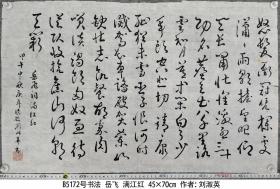 怒髮衝冠憑欄處
瀟瀟雨歇抬望眼仰
天長嘯壯懷激烈三
十功名塵與土八千里路
雲和月莫等閒白了少
年頭空悲切靖康恥
猶未雪臣子恨何時
滅駕長車踏破賀蘭山
缺壯志飢餐胡虜肉
笑談渴飲匈奴血待
從頭收拾舊山河朝
天闕
岳飛詞滿江紅
B5172号书法 岳飞 满江红 45×70cm 作者:刘淑英